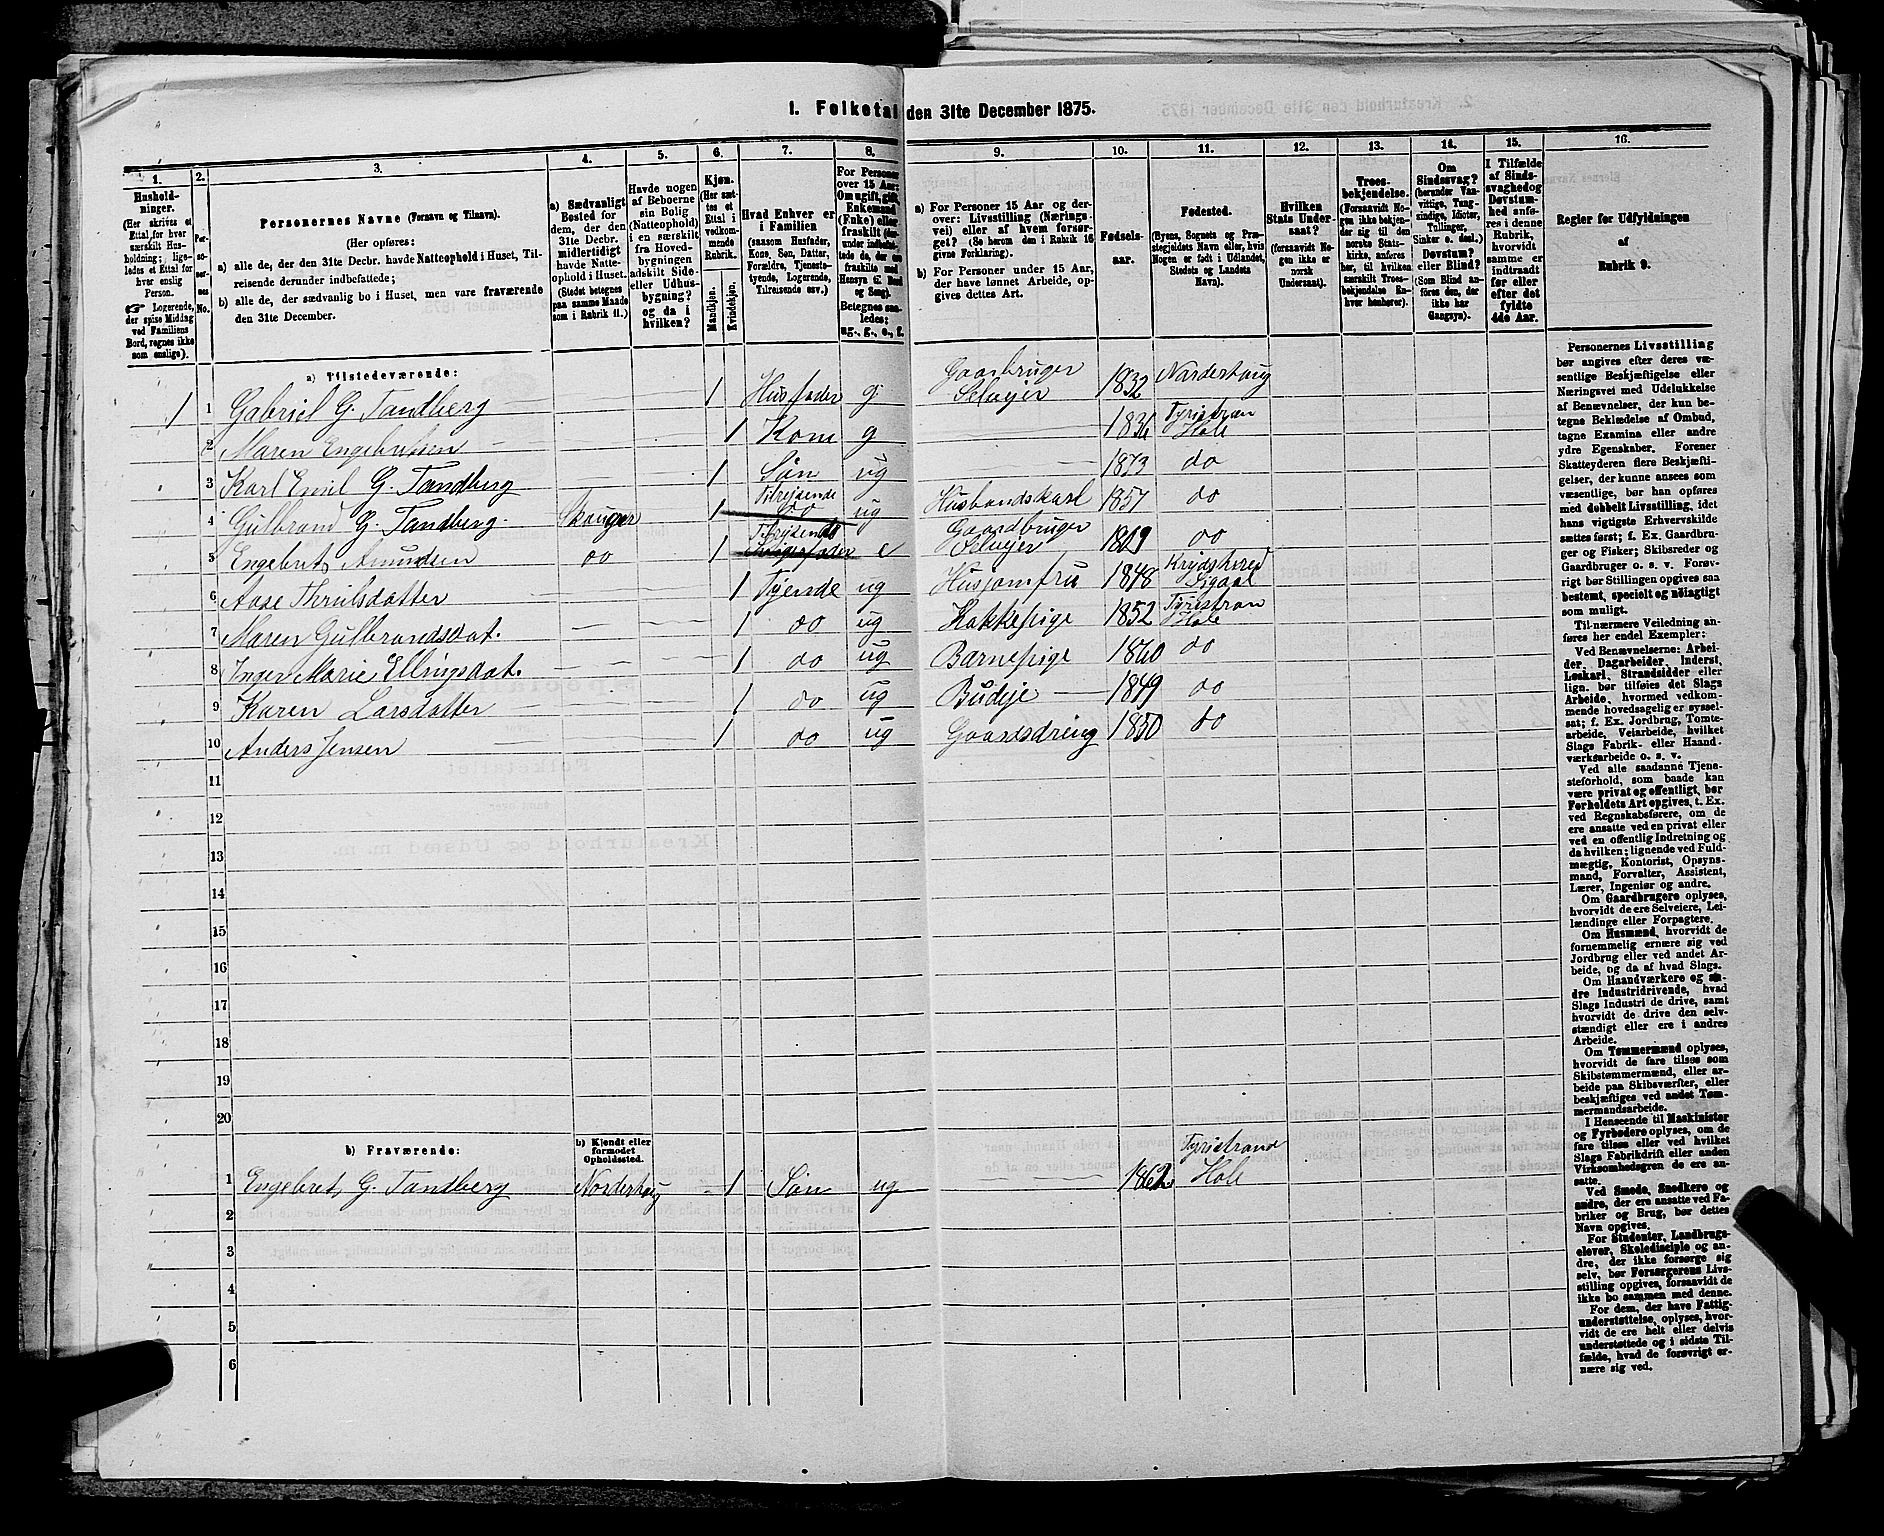 1. Folketal den 31te December 1875.
1.
2.
3.
4.
5.
6.
7.
8.
9.
10.
11.
12.
13.
14.
15.
16.
Hushold-
ninger.
(Her skrives et
Ettal for hver
særskilt Hus-
holdning; lige-
ledes et Ettal for
hver enslig
Person.
Logerende,
der spise Middag
ved Familiens
Bord, regnes ikke
som enslige).
Per-
so-
ner-
nes
No.
Personernes Navne (Fornavn og Tilnavn).
(Her opføres:
a) alle de, der den 31te Decbr. havde Natteophold i Huset, Til-
reisende derunder indbefattede;
b) alle de, der sædvanlig bo i Huset, men vare fraværende
den 31te December.
a) Sædvanligt
Bosted for
dem, der den
31te Decbr.
midlertidigt
havde Natte-
ophold i Huset.
(Stedet betegnes
paa samme Maade
som i Rubrik 11.)
Havde nogen
af Beboerne
sin Bolig
(Natteophold)
i en særskilt
fra Hoved-
bygningen
adskilt Side-
eller Udhus-
bygning?
og da i
hvilken?
Kjøn.
(Her sæt-
tes et
Ettal i
vedkom-
mende
Rubrik.
Mandkjøn.
Kvindekjøn.
Hvad Enhver er
i Familien
(saasom Husfader,
Kone, Søn, Datter,
Forældre, Tjeneste-
tyende, Logerende,
Tilreisende osv.)
For Personer
over 15 Aar:
Om ugift, gift,
Enkemand
(Enke) eller
fraskilt
Betegnes saa-
ledes:
ug., g., e., f.
a) For Personer 15 Aar og der-
over: Livsstilling (Nærings-
vei) eller af hvem forsør-
get? (Se herom den i Rubrik 16
givne Forklaring).
b) For Personer under 15 Aar,
der have lønnet Arbeide, op-
gives dettes Art.
Fødsels-
aar.
Fødested.
(Byens, Sognets og Præ-
stegjeldets Navn eller, hvis
Nogen er født i Udlandet,
Stedets og Landets
Navn).
Hvilken
Stats Under-
saat?
(forsaavidt No-
gen ikke er
norsk
Undersaat).
Troes-
bekjendelse.
(Forsaavidt No-
gen ikke bekjen-
der sig til den
norske Stats-
kirke, anføres
her, til hvilken
særskilt Troes-
bekjendelse En-
hver henhører).
Om
Sindssvag?
(herunder Van-
vittige, Tung-
sindige, Idioter,
Tullinger,
Sinker o. desl.)
Døvstum?
eller Blind?
(Som Blind an-
føres den, der
ikke har
Gangsyn).
I Tilfælde
af Sinds-
svaghed og
Døvstum-
hed anfø-
res i denne
Rubrik,
hvorvidt
samme er
indtraadt
før eller
efter det
fyldte
4de Aar.
Regler for Udfyldningen
af
Rubrik 9.
a) Tilstedeværende:
1 1 Gabriel G. Tandberg 1 Husfader g Gaarbruger Selvejer 1832 Norderhaug
2 Maren Engebretsen 1 Kone g 1836 Tyristran Hole
3 Karl Emil G. Tandberg 1 Søn ug 1873 do
4 Gulbrand G. Tandberg Skouger 1 Tilrejsende do ug Husbondskarl 1857 do
5 Engebret Amundsen do 1 Tilrejsende Svigerfader e Gaardbruger Selvejer 1809 do
6 Aase Thrulsdatter 1 Tjende ug Husjomfru 1848 Krydsherred Sigdal
7 Maren Gulbrandsdat. 1 do ug Kokkepige 1852 Tyristran Hole
8 Inger Marie Ellingsdat. 1 do ug Barnepige 1860 do
9 Karen Larsdatter 1 do ug Budeje 1849 do
10 Anders Jensen 1 do ug Gaardsdreng 1850 do
11
12
13
14
15
16
17
18
19
20
b) Fraværende:
b) Kjendt eller
formodet
Opholdssted.
1 Engebret G. Tandberg Norderhaug 1 Søn ug 1862 Tyristrand Hole
2
3
4
5
6
Personernes Livsstilling
bør angives efter deres væ-
sentlige Beskjæftigelse eller
Næringsvei med Udelukkelse
af Benævnelser, der kun be-
tegne Beklædelse af Ombud,
tagne Examina eller andre
ydre Egenskaber. Forener
Skatteyderen flere Beskjæfti-
gelser, der kunne ansees som
væsentlige, bør han opføres
med dobbelt Livsstilling, idet
hans vigtigste Erhvervskilde
sættes først; f. Ex. Gaardbru-
ger og Fisker; Skibsreder og
Gaardbruger o. s. v. Forøv-
rigt bør Stillingen opgives saa
bestemt, specielt og nøiagtigt
som muligt.
Til nærmere Veiledning an-
føres her endel Exempler:
Ved Benævnelserne: Arbei-
der, Dagarbeider, Inderst,
Løskarl, Strandsidder eller
lign. bør tilføies det Slags
Arbeide, hvormed vedkom-
mende hovedsagelig er syssel-
sat; f. Ex. Jordbrug, Tomte-
arbeide, Veiarbeide, hvilket
Slags Fabrik- eller Haand-
værksarbeide o. s. v.
Ved alle saadanne Tjene-
steforhold, som baade kan
være privat og offentligt, bør
Forholdets Art opgives, t. Ex.
ved Regnskabsførere, om de
ere ansatte ved en privat eller
ved en offentlig Indretning og
da hvilken; lignende ved Fuld-
mægtig, Kontorist, Opsyns-
mand, Forvalter, Assistent,
Lærer, Ingeniør og andre.
Om Gaardbrugere oplyses,
hvorvidt de ere Selveiere, Lei-
lændinge eller Forpagtere.
Om Husmænd, hvorvidt de
fornemmelig ernære sig ved
Jordbrug eller ved andet Ar-
beide, og da af hvad Slags.
Om Haandværkere og an-
dre Industridrivende, hvad
Slags Industri de drive, samt
hvorvidt de drive den selv-
stændigt eller ere i andres
Arbeide.
Om Tømmermænd oplyses,
hvorvidt de fare tilsøs som
Skibstømmermænd, eller ar-
beide paa Skibsværfter, eller
beskjæftiges ved andet Tøm-
mermandsarbeide.
I Henseende til Maskinister
og Fyrbødere oplyses, om de
fare tilsøs eller ved hvilket
Slags Fabrikdrift eller anden
Virksomhedsgren de ere an-
satte.
Ved Smede, Snedkere og
andre, der ere ansatte ved Fa-
briker og Brug, bør dettes
Navn opgives.
For Studenter, Landbrugs-
elever, Skoledisciple og an-
dre, der ikke forsørge sig
selv, bør Forsørgerens Livs-
stilling opgives, forsaavidt de
ikke bo sammen med denne.
For dem, der have Fattig-
understøttelse, oplyses, hvor-
vidt de ere helt eller delvis
understøttede og i sidste Til-
fælde, hvad de forøvrigt er-
nære sig ved.